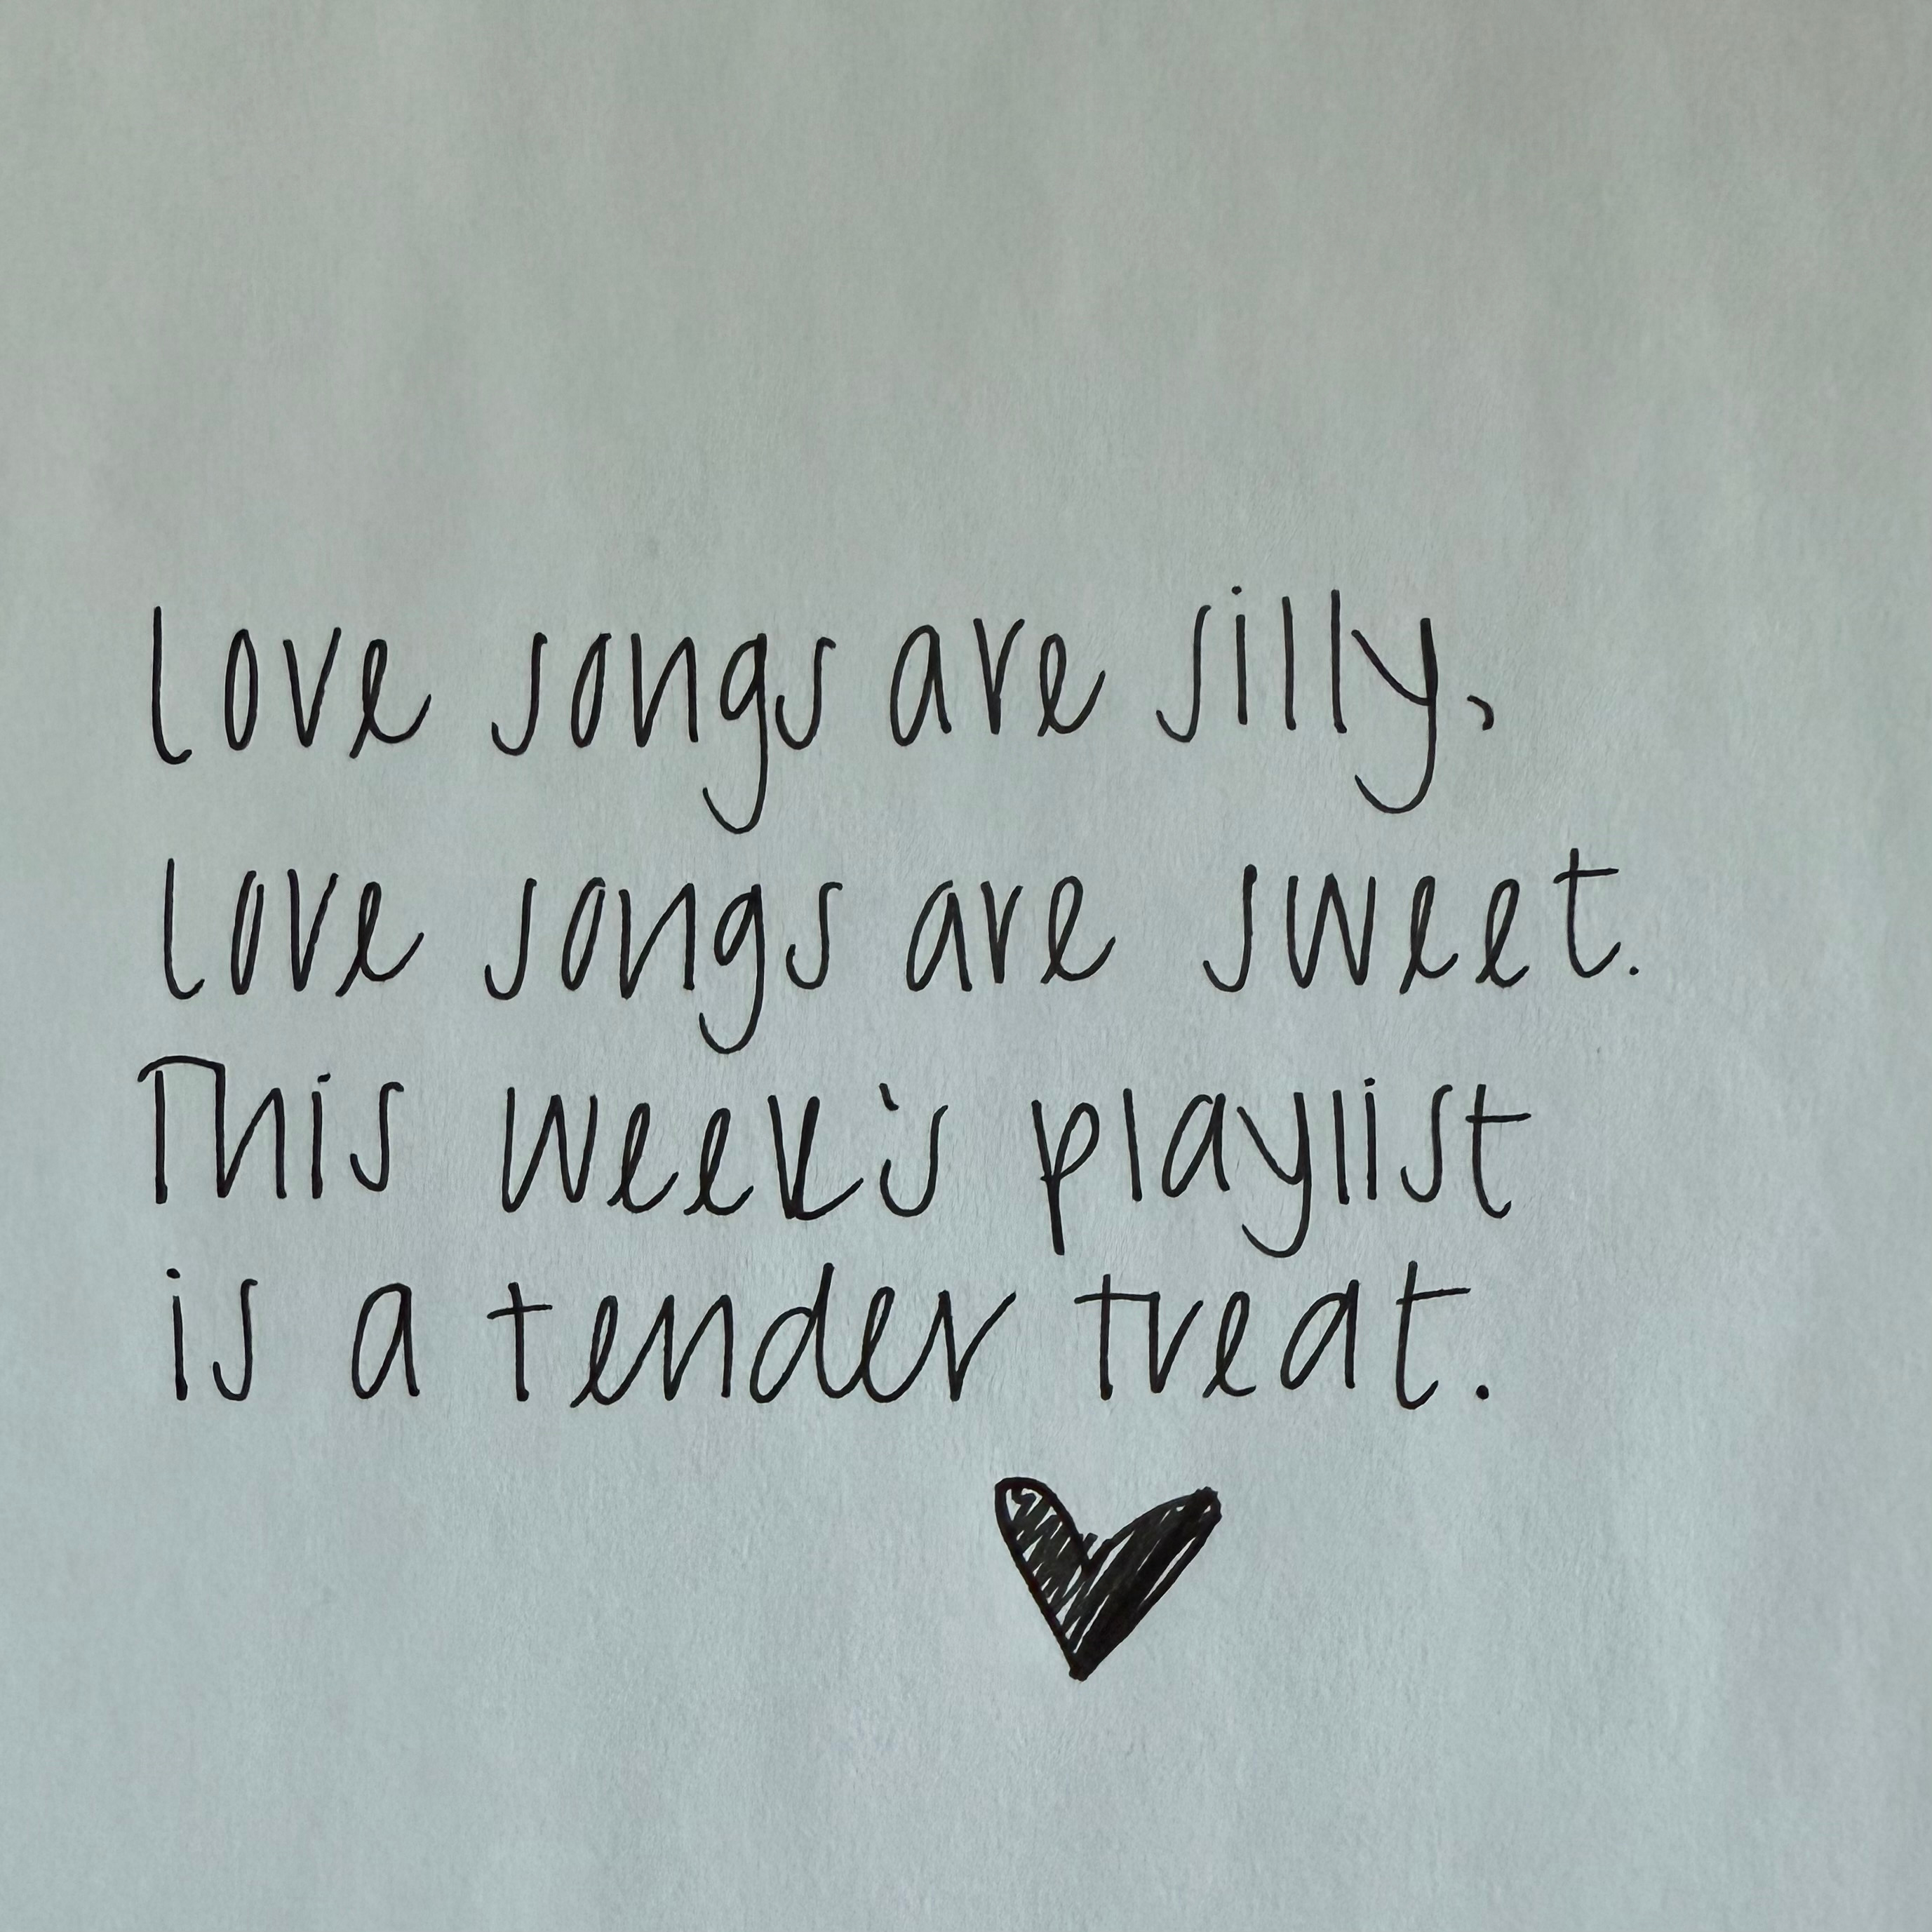 love songs are silly,
love songs are sweet.
This week's playlist
is a tender treat.